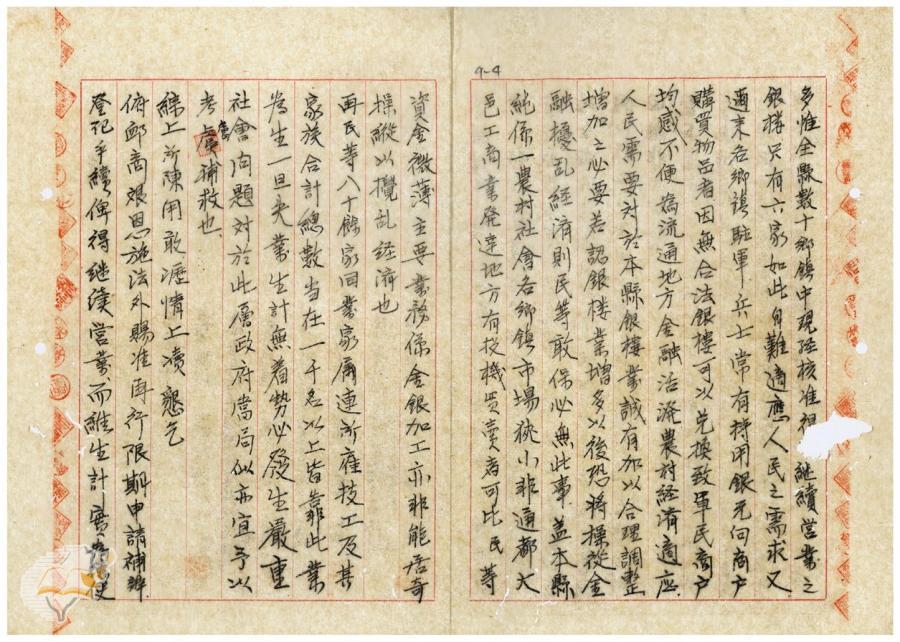 9-4
多惟全縣數十鄉鎮中現經核准得 継續営業之
銀樓只有六家如此自難適應人民之需求又
週来各鄉鎮駐軍兵士常有持用銀元向商戶
購買物品者因無合法銀樓可以兌換致軍民商戶
均感不便為流通地方金融活潑農村経済適应
人民需要対於本縣銀樓業誠有加以合理調整
增加之必要若認銀樓業增多以後恐將操縱金
融擾乱経済則民等敢保必無此事盖本縣
純係一農村社會各鄉鎮市場狹小非通都大
邑工商業発達地方有投機買賣者可比民等
資金微薄主要業務係金銀加工亦非能居奇
操縱以攪乱経済也
再民等八十餘家同業家屬連所雇技工及其
家族合計總數当在一千名以上皆靠此業
為生一旦失業生計無着勢必發生嚴重
社會问題对於此層政府當局似亦宜予以
考慮補救也
綜上所陳用敢瀝情上凟懇乞
俯邺商艱恩施法外賜准再行限期申請補辦
登记手續俾得継續営業而維生計實為德便